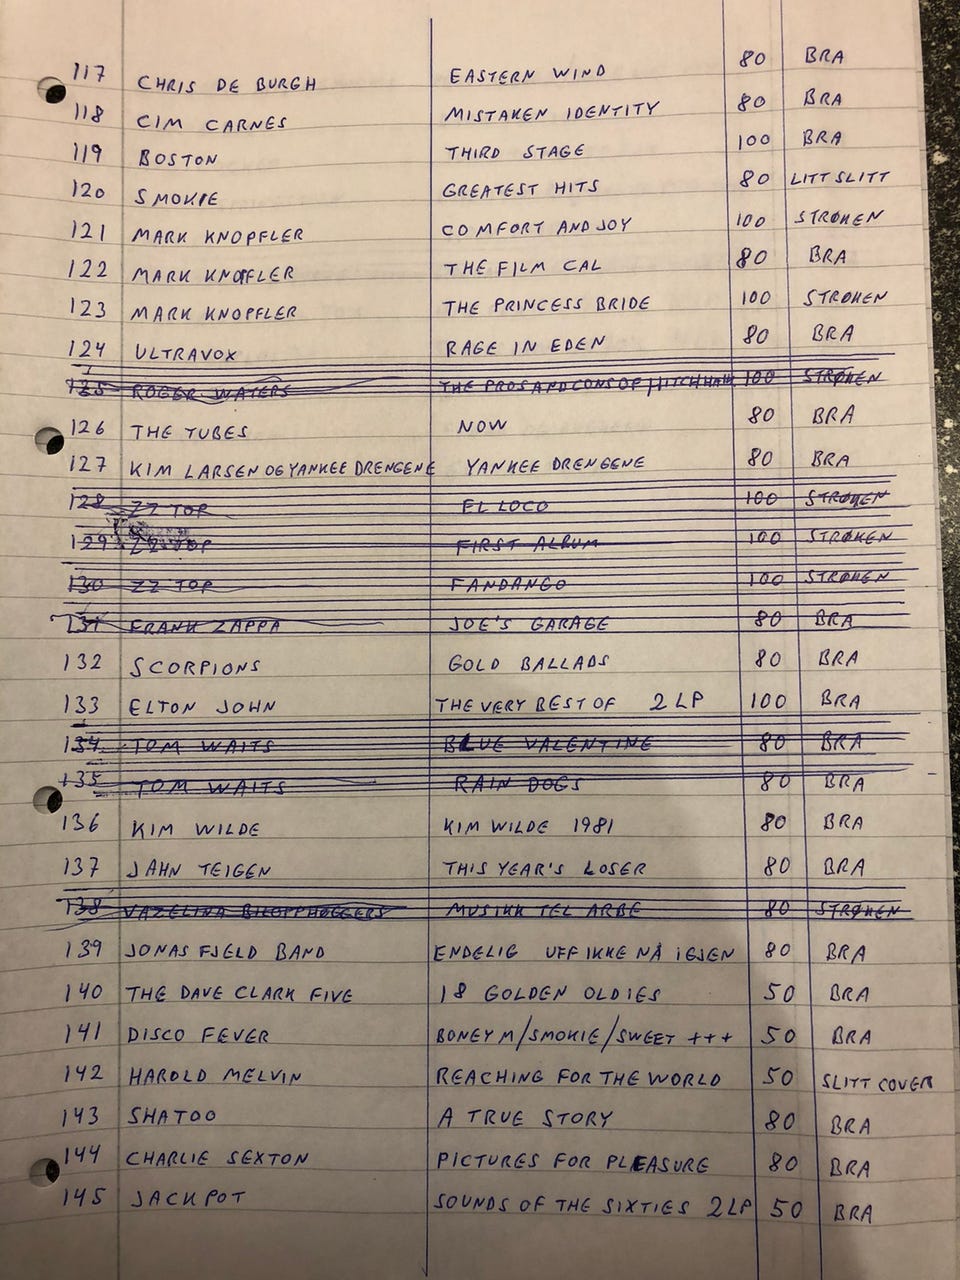 117 CHRIS DE BURGH EASTERN WIND 80 BRA
118 CIM CARNES MISTAKEN IDENTITY 80 BRA
119 BOSTON THIRD STAGE 100 BRA
120 SMOKIE GREATEST HITS 80 LITT SLITT
121 MARK KNOPFLER COMFORT AND JOY 100 STRØKEN
122 MARK KNOPFLER THE FILM CAL 80 BRA
123 MARK KNOPFLER THE PRINCESS BRIDE 100 STRØKEN
124 ULTRAVOX RAGE IN EDEN 80 BRA
125 ROGER WATERS THE PROS AND CONS OF HITCHHAIK 100 STRØKEN
126 THE TUBES NOW 80 BRA
127 KIM LARSEN OG YANKEE DRENGENE YANKEE DRENGENE 80 BRA
128 ZZ TOP EL LOCO 100 STRØKEN
129 ZZ TOP FIRST ALBUM 100 STRØKEN
130 ZZ TOP FANDANGO 100 STRØKEN
131 FRANK ZAPPA JOE'S GARAGE 80 BRA
132 SCORPIONS GOLD BALLADS 80 BRA
133 ELTON JOHN THE VERY BEST OF 2 LP 100 BRA
134 TOM WAITS BLUE VALENTINE 80 BRA
135 TOM WAITS RAIN DOGS 80 BRA
136 KIM WILDE KIM WILDE 1981 80 BRA
137 JAHN TEIGEN THIS YEAR'S LOSER 80 BRA
138 VAZELINA BILOPPHØGGERS MUSIKK TEL ARBE 80 STRØKEN
139 JONAS FJELD BAND ENDELIG UFF IKKE NÅ IGJEN 80 BRA
140 THE DAVE CLARK FIVE 18 GOLDEN OLDIES 50 BRA
141 DISCO FEVER BONEY M/SMOKIE/SWEET +++ 50 BRA
142 HAROLD MELVIN REACHING FOR THE WORLD 50 SLITT COVER
143 SHATOO A TRUE STORY 80 BRA
144 CHARLIE SEXTON PICTURES FOR PLEASURE 80 BRA
145 JACKPOT SOUNDS OF THE SIXTIES 2 LP 50 BRA